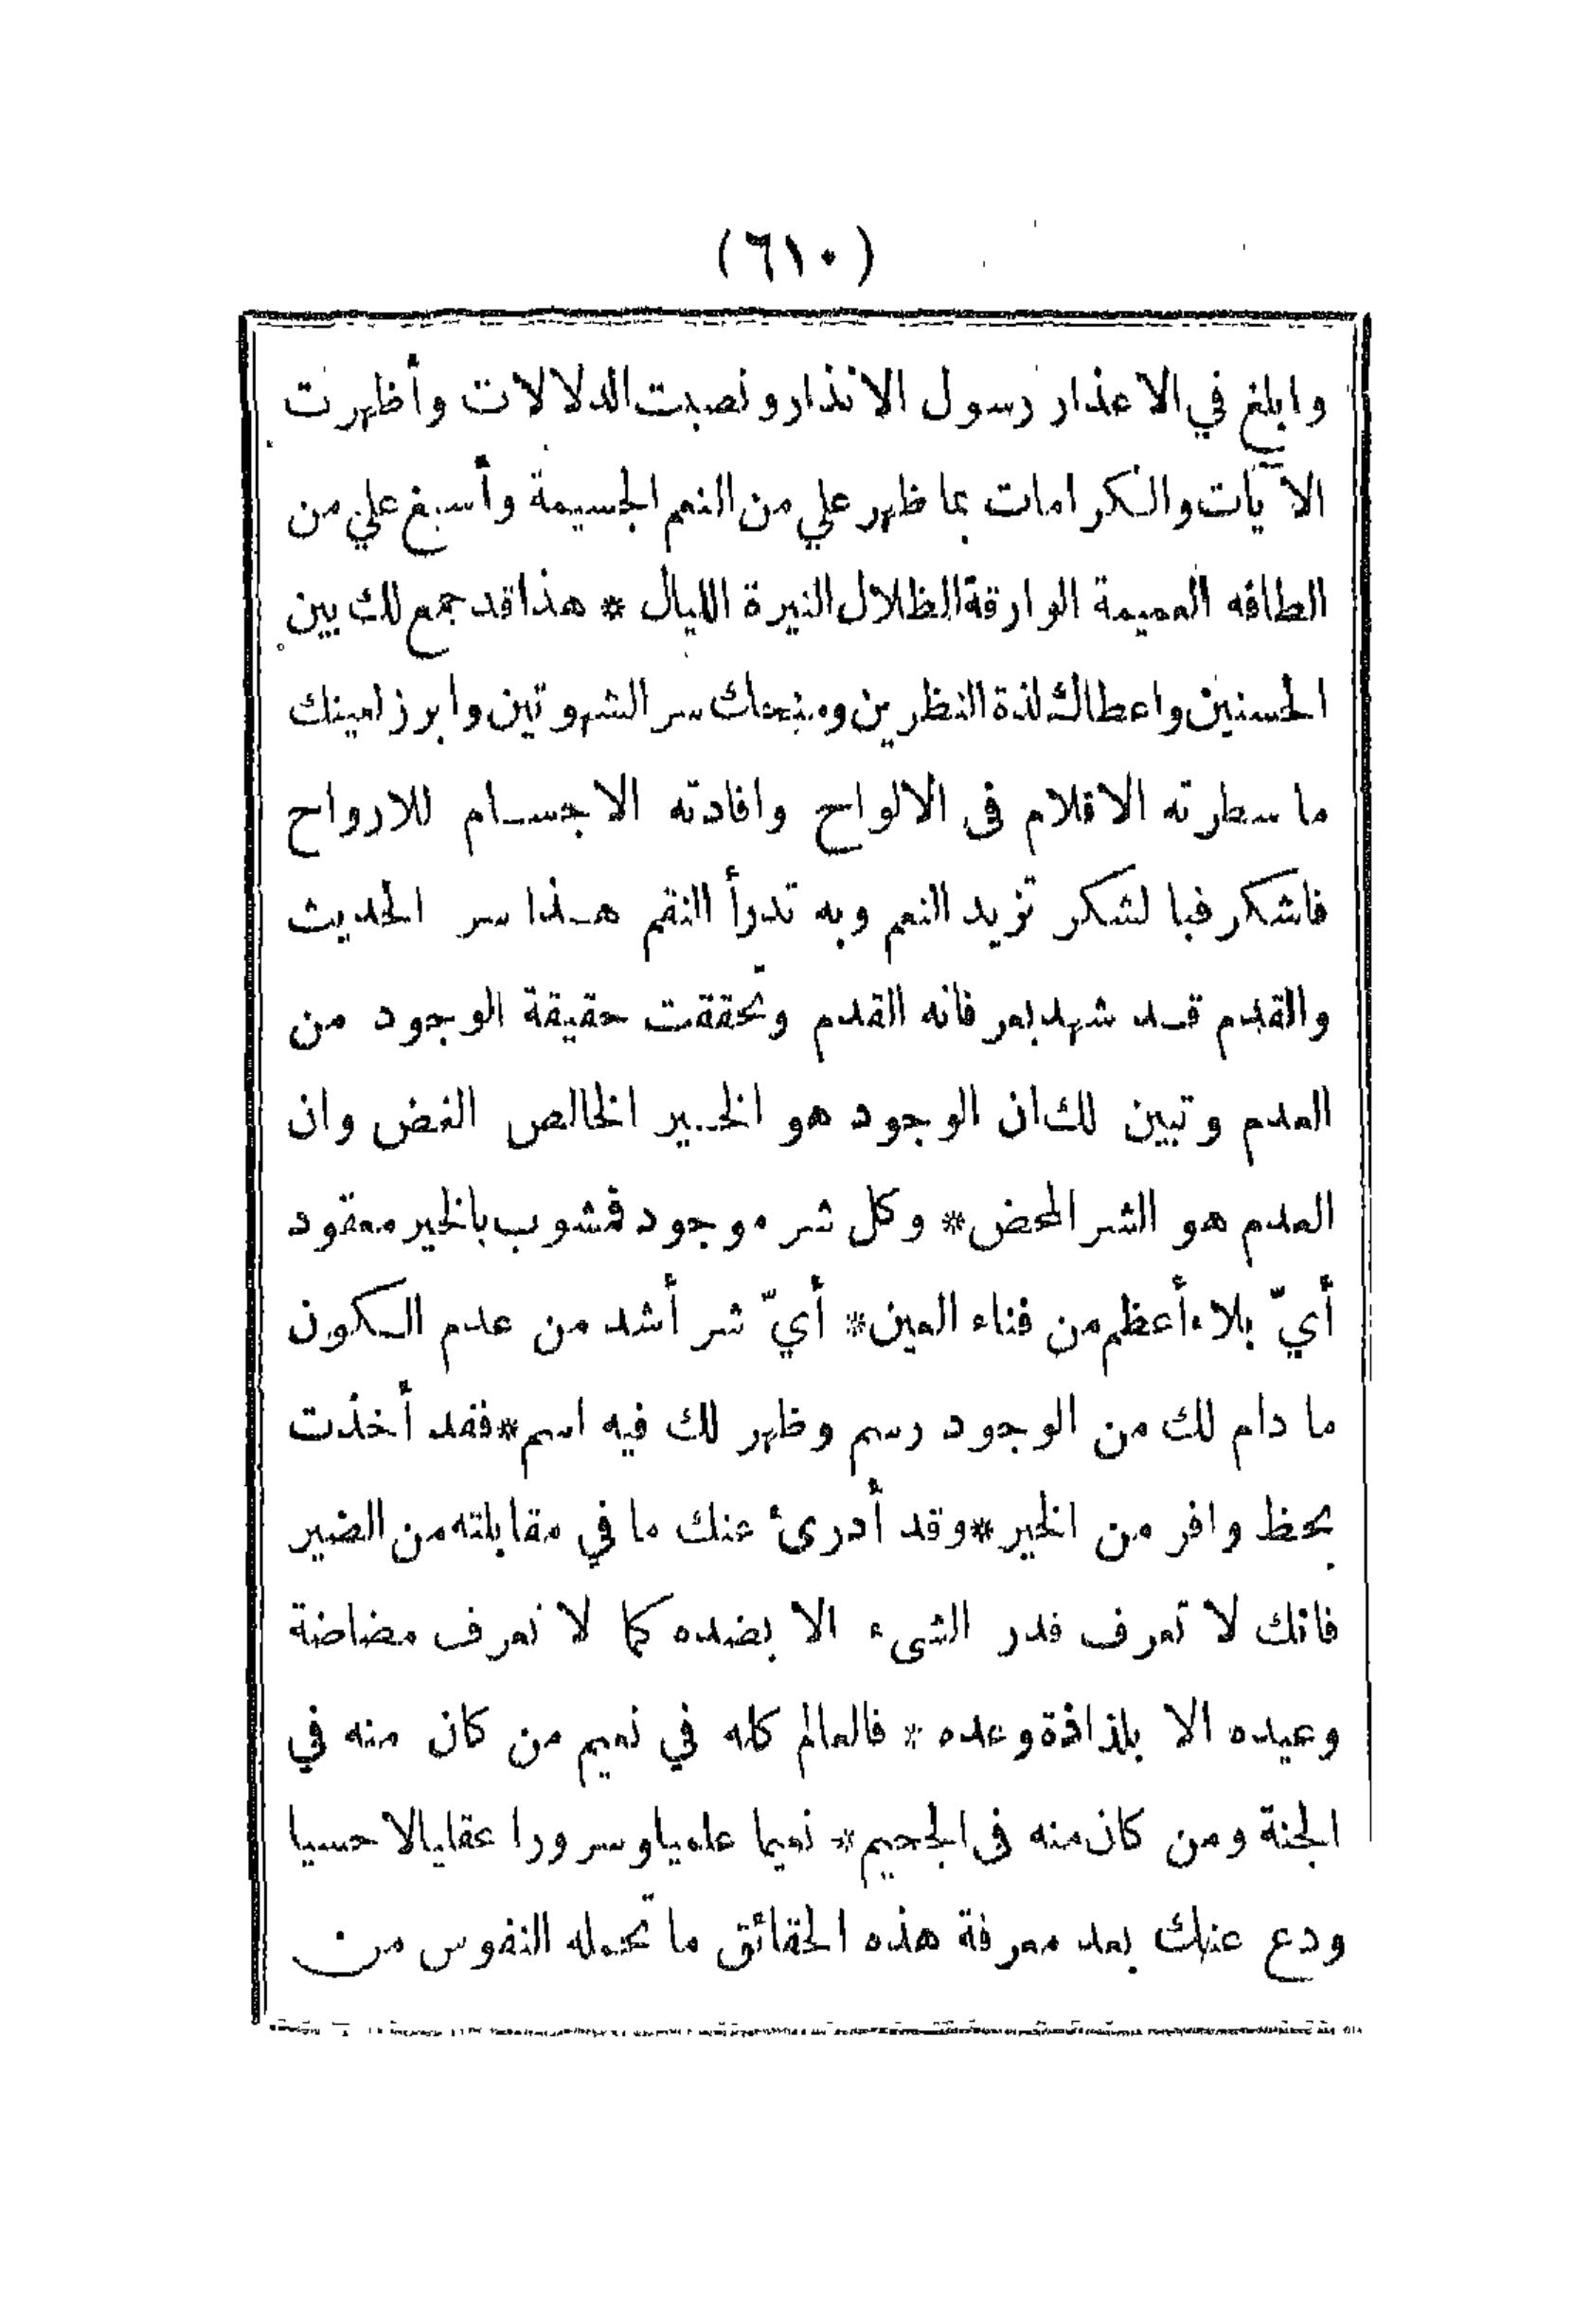 (٦١٠)
وابلغ في الاعذار رسول الانذار ونصبت الدلالات وأظهرت
الآيات والكرامات بما ظهر علي من النعم الجسيمة وأسبغ علي من
الطافه العميمة الوارقة الظلال النيرة الليال * هذا قد جمع لك بين
الحسنين واعطاك لذة النظرين ومنحك سر الشهوتين وابرز لعينك
ما سطرته الاقلام فى الالواح وافادته الاجسام للارواح
فاشكر فبا لشكر تزيد النعم وبه تدرأ النقم هذا سر الحديث
والقدم قد شهد بعرفانه القدم وتحققت حقيقة الوجود من
العدم وتبين لك ان الوجود هو الخير الخالص الغض وان
العدم هو الشر المحض * وكل شر موجود فشوب بالخير معقود
أيّ بلاء أعظم من فناء العين * أيّ شر أشد من عدم الكون
ما دام لك من الوجود رسم وظهر لك فيه اسم * فقد أخذت
بحظ وافر من الخير * وقد أدرئ عنك ما في مقابلته من الضير
فانك لا تعرف قدر الشىء الا بضده كما لا نعرف مضاضة
وعيده الا بلذاذة وعده * فالعالم كله في نعيم من كان منه في
الجنة ومن كان منه فى الجحيم * نعيما علميا وسرورا عقليا لا حسيا
ودع عنك بعد معرفة هذه الحقائق ما تحمله النفوس من